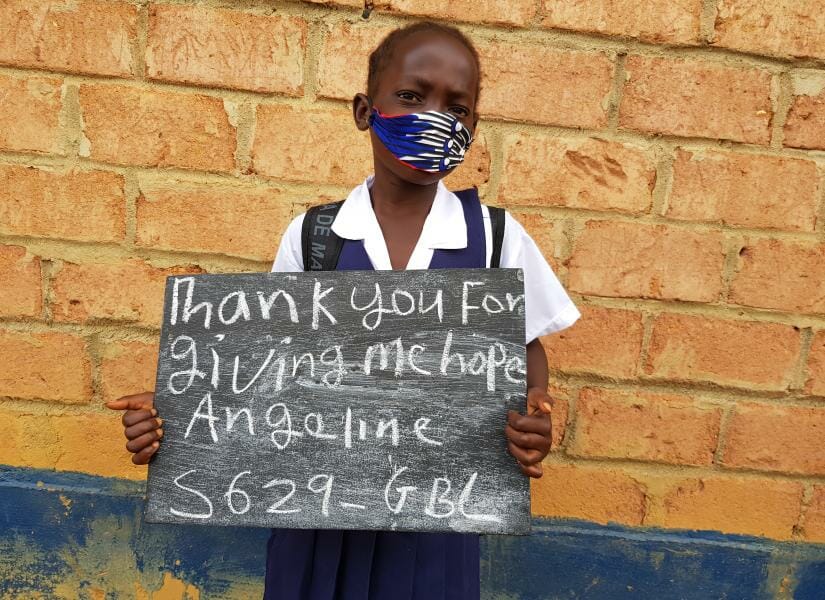 A DE MA
Thank you For
giving me hope
Angeline
S629-GBL